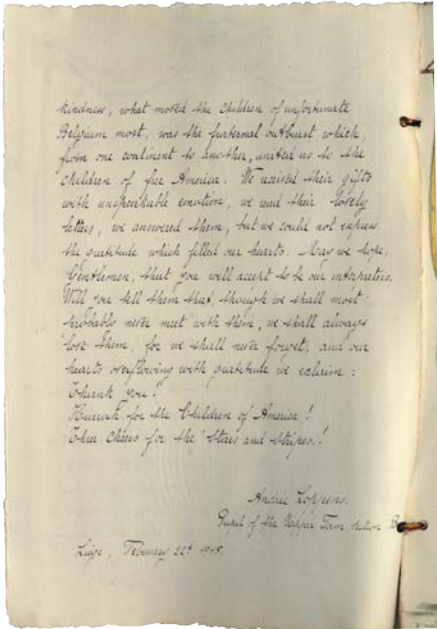 kindness, what moved the Children of unfortunate
Belgium most, was the fraternal outburst which,
from one continent to another, united us to the
Children of free America. We received their gifts
with unspeakable emotion, we read their lovely
letters, we answered them, but we could not express
the gratitude which filled our hearts. May we hope,
Gentlemen, that you will accept to be our interpreters.
Will you tell them that, though we shall most
probably never meet with them, we shall always
love them, for we shall never forget, and our
hearts overflowing with gratitude we exclaim:
Thank you!
Hurrah for the Children of America!
Three Cheers for the "Stars and Stripes"!
Pupil of the Upper Form, section B
Liège, February 22d